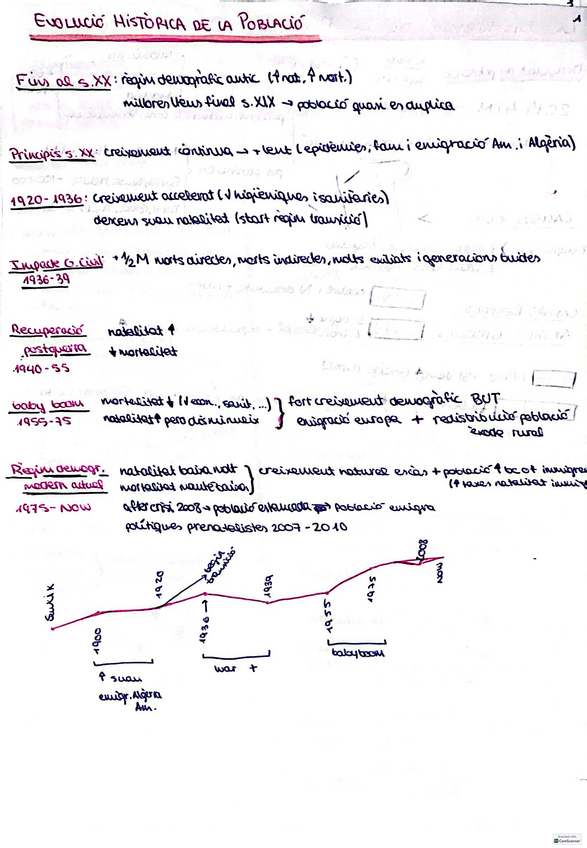 EVOLUCIÓ HISTÒRICA DE LA POBLACIÓ
1
Fins al s.XX: règim demogràfic antic (↑nat, ↑mort.)
millores lleus final s.XIX → població quasi es duplica
Principis s.XX: creixement continua → + lent (epidèmies, fam i emigració Am. i Algèria)
1920-1936: creixement accelerat (✓ higièniques i sanitàries)
descens suau natalitat (start règim transició)
Impacte G.Civil + 1/2 M morts directes, morts indirectes, molts exiliats i generacions buides
1936-39
Recuperació natalitat ↑
postguerra ↓ mortalitat
1940-55
baby boom mortalitat ↓ (✓ econ., sanit, ...) } fort creixement demogràfic BUT
1955-75 natalitat ↑ però disminueix emigració europa + redistribució població
èxode rural
Règim demogr. natalitat baixa molt } creixement natural escàs + població ↑ bc of immigra
modern actual mortalitat manté baixa (↑ taxes natalitat immig
1975-NOW after crisi 2008 → població estancada → població emigra
polítiques prenatalistes 2007-2010
2008
règim transició
1920
1939
1975
NOW
1900
1936 →
1955
↑ suau
war +
babyboom
emigr. Algèria
Am.
CamScanner